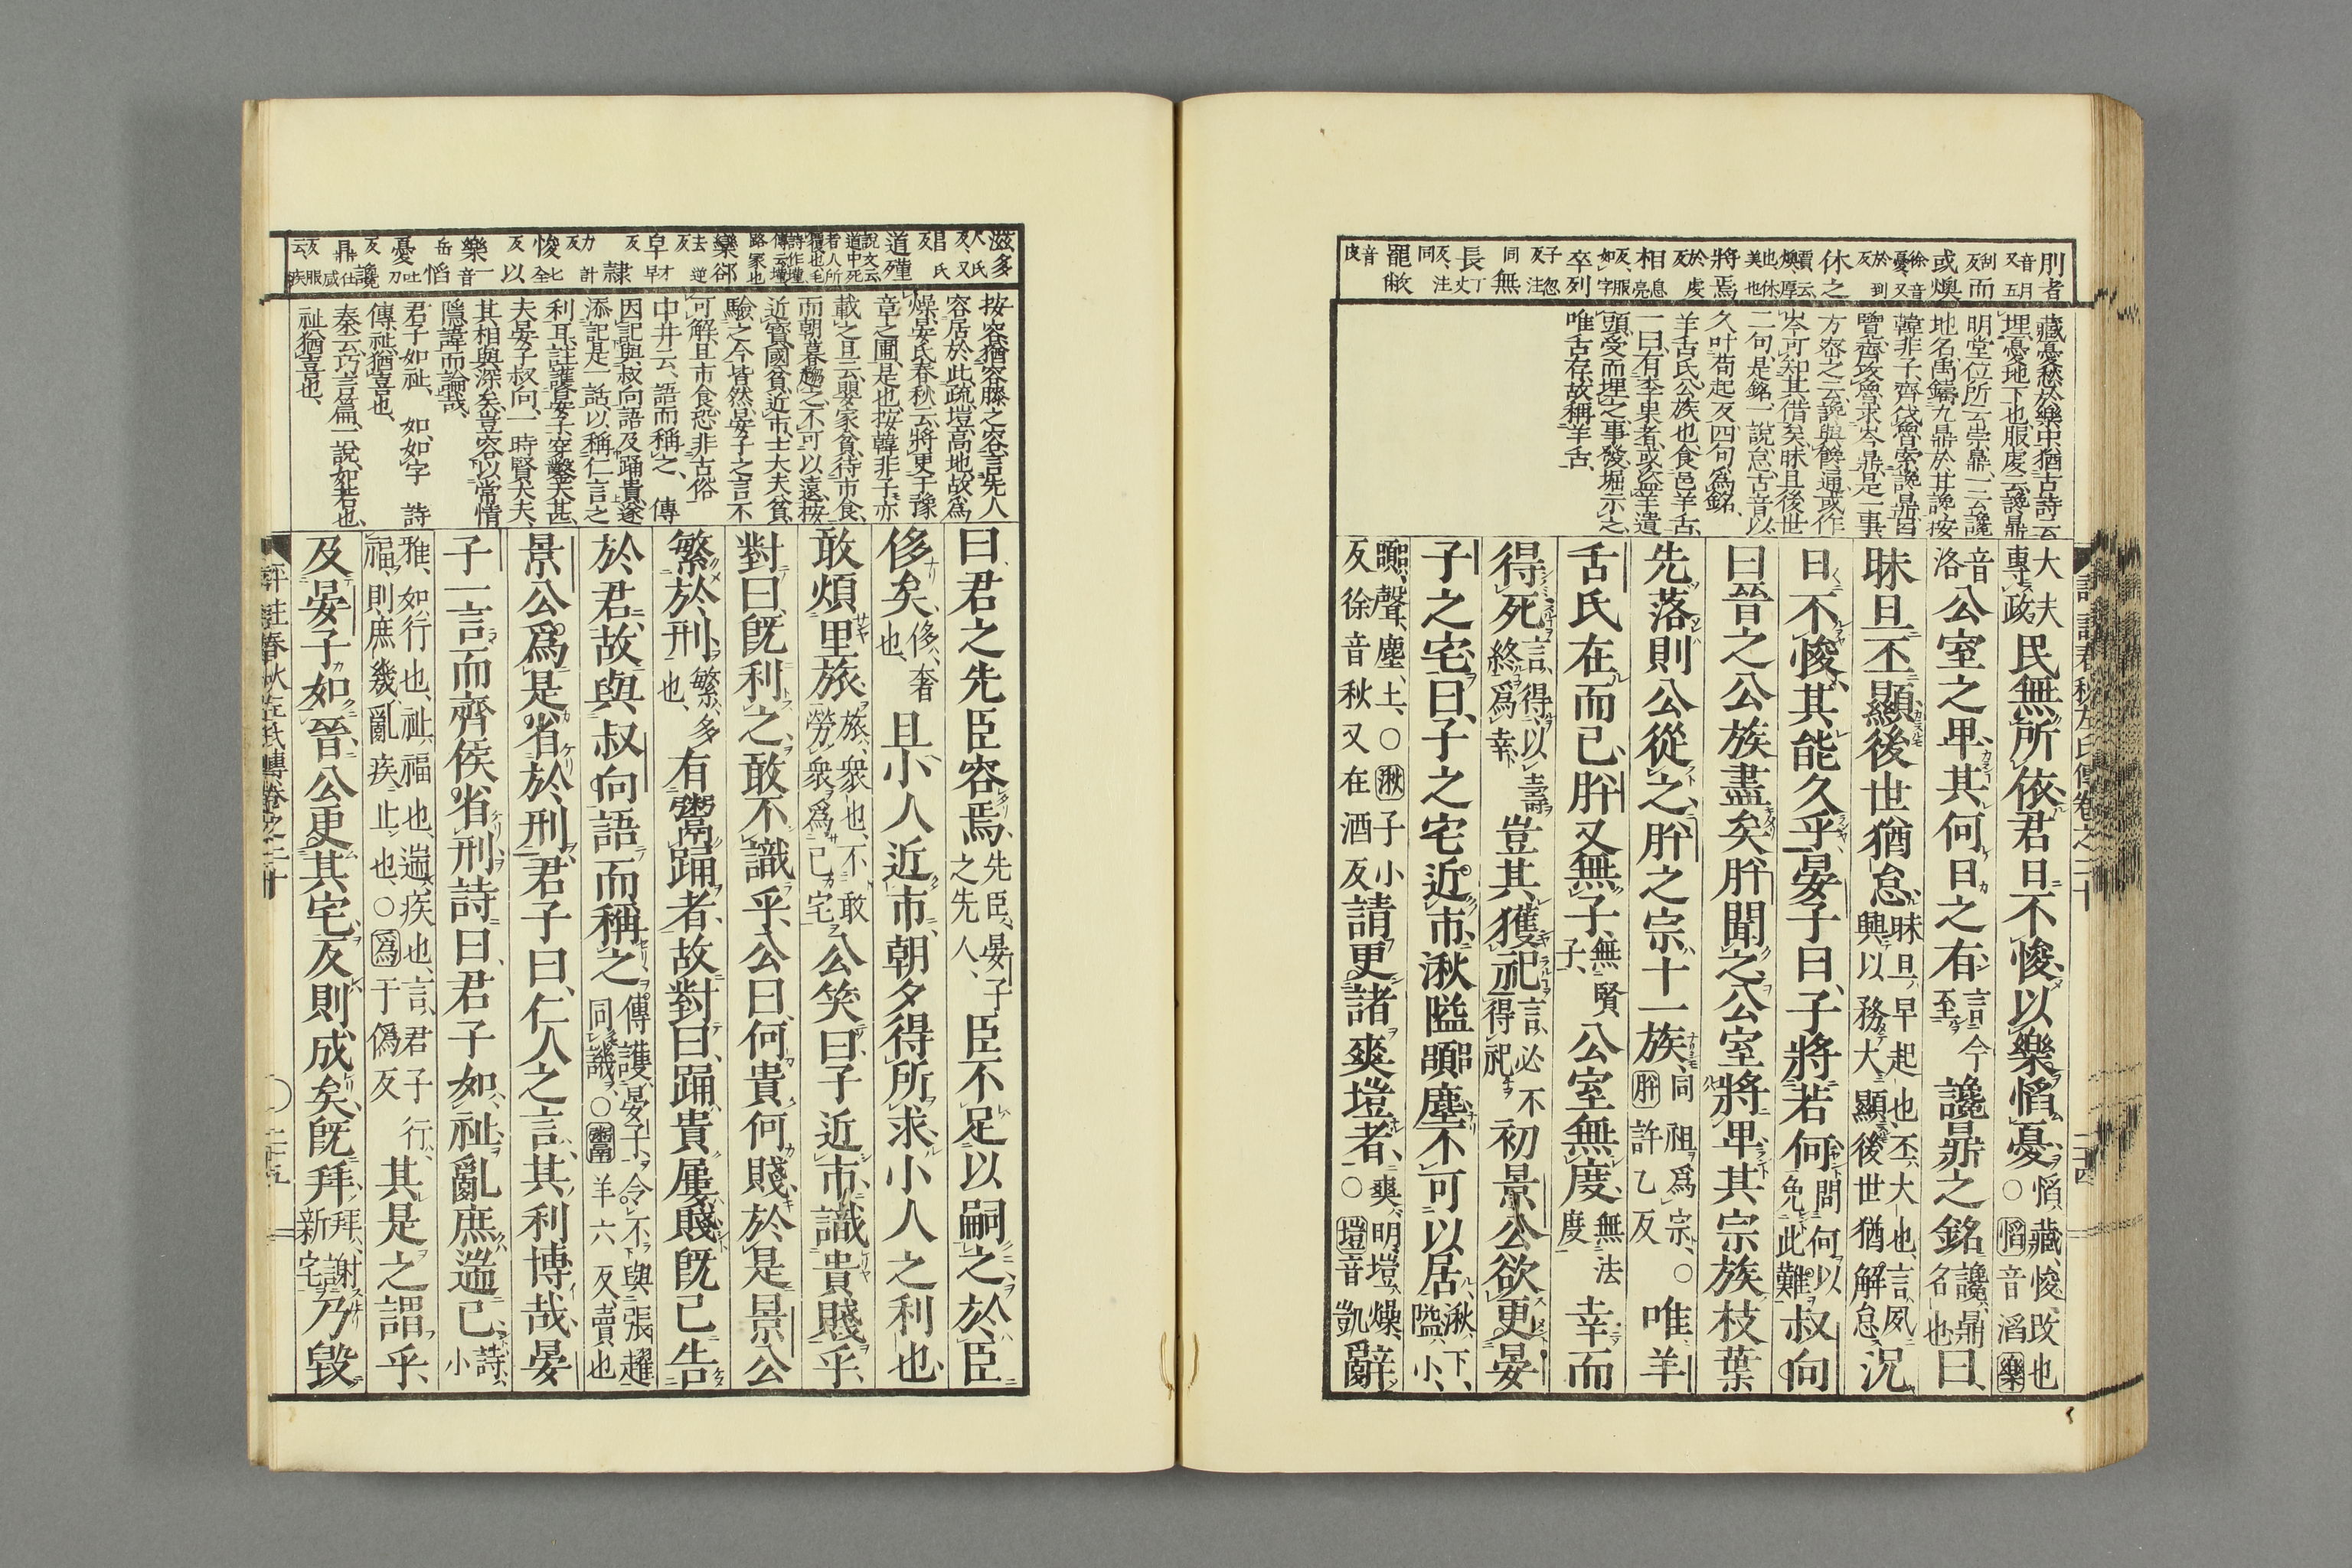 刖者 音月 又五
刮反 而
或燠 徐音憂又於到反
休之 賈云燠厚也休美也
將焉 於虔反
相 息亮反服如字
卒列 子忽反注同
無長 丁丈反注同
罷敝 音皮
藏憂愁於樂中猶古詩云
埋憂地下也服虔云讒鼎
明堂位所云崇鼎一云讒
地名禹鑄九鼎於甘讒按
韓非子齊伐魯索讒鼎呂
覽齊攻魯求岑鼎是一事
方密之云讒與鬵通或作
岑可知其借矣昧旦後世
二句是銘一說怠古音以
久叶苟起反四句爲銘
羊舌氏公族也食邑羊舌
一曰有李果者或盜羊遺
頭受而埋之事發堀示之
唯舌存故稱羊舌
大夫專政民無所依君日不悛以樂慆憂○慆藏悛改也慆音滔樂
音洛公室之卑其何日之有言今至讒鼎之銘讒鼎名也曰
昧旦丕顯後世猶怠昧旦早起也丕大也言夙興以務大顯後世猶解怠況
日不悛其能久乎晏子曰子將若何問何以免此難叔向
曰晉之公族盡矣肸聞之公室將卑其宗族枝葉
先落則公從之肸之宗十一族同祖爲宗○肸許乙反唯羊
舌氏在而已肸又無子無賢子公室無度無法度幸而
得死言得以壽終爲幸豈其獲祀言必不得祀初景公欲更晏
子之宅曰子之宅近市湫隘嚻塵不可以居湫下隘小
嚻聲塵土○湫子小反徐音秋又在酒反請更諸爽塏者爽明塏燥○塏音凱辭
評註春秋左氏傳卷之二十
二十四
滋多
尺氏反又昌氏反
道殣 說文云道中死者人所覆也毛詩作墐傳云墐路冢也
欒郤 去逆反
皁 才早反
隸 力計反
悛 七全反
以樂 音岳
一慆
憂 吐刀反
讒鼎 仕咸反服云疾
按容猶容膝之容言先人
容居於此疏塏高地故爲
燥晏氏春秋云將更于豫
章之圃是也按韓非子亦
載之且云嬰家貧待市食
而朝暮趨之不可以遠按
近寶國貧近市士大夫貧
驗之今皆然晏子之言不
可解且市食恐非古俗
中井云語而稱之 傳
因記與叔向語及踊貴遂
添記是一話以稱仁言之
利耳註護晏子穿鑿太甚
夫晏子叔向一時賢大夫
其相與深矣豈容以常情
隱諱而論哉
君子如祉 如如字 詩
傳祉猶喜也
秦云巧言篇一說如若也
祉猶喜也
曰君之先臣容焉先臣晏子之先人臣不足以嗣之於臣
侈矣侈奢也且小人近市朝夕得所求小人之利也
敢煩里旅旅衆也不敢勞衆爲己宅公笑曰子近市識貴賤乎
對曰旣利之敢不識乎公曰何貴何賤於是景公
繁於刑繁多也有鬻踊者故對曰踊貴屨賤旣已告
於君故與叔向語而稱之傳護晏子令不與張趯同譏○鬻羊六反賣也
景公爲是省於刑君子曰仁人之言其利博哉晏
子一言而齊侯省刑詩曰君子如祉亂庶遄已詩小
雅如行也祉福也遄疾也言君子行福則庶幾亂疾止也○爲于僞反行其是之謂乎
及晏子如晉公更其宅反則成矣旣拜拜謝新宅乃毀
評註春秋左氏傳卷之二十
○二十五